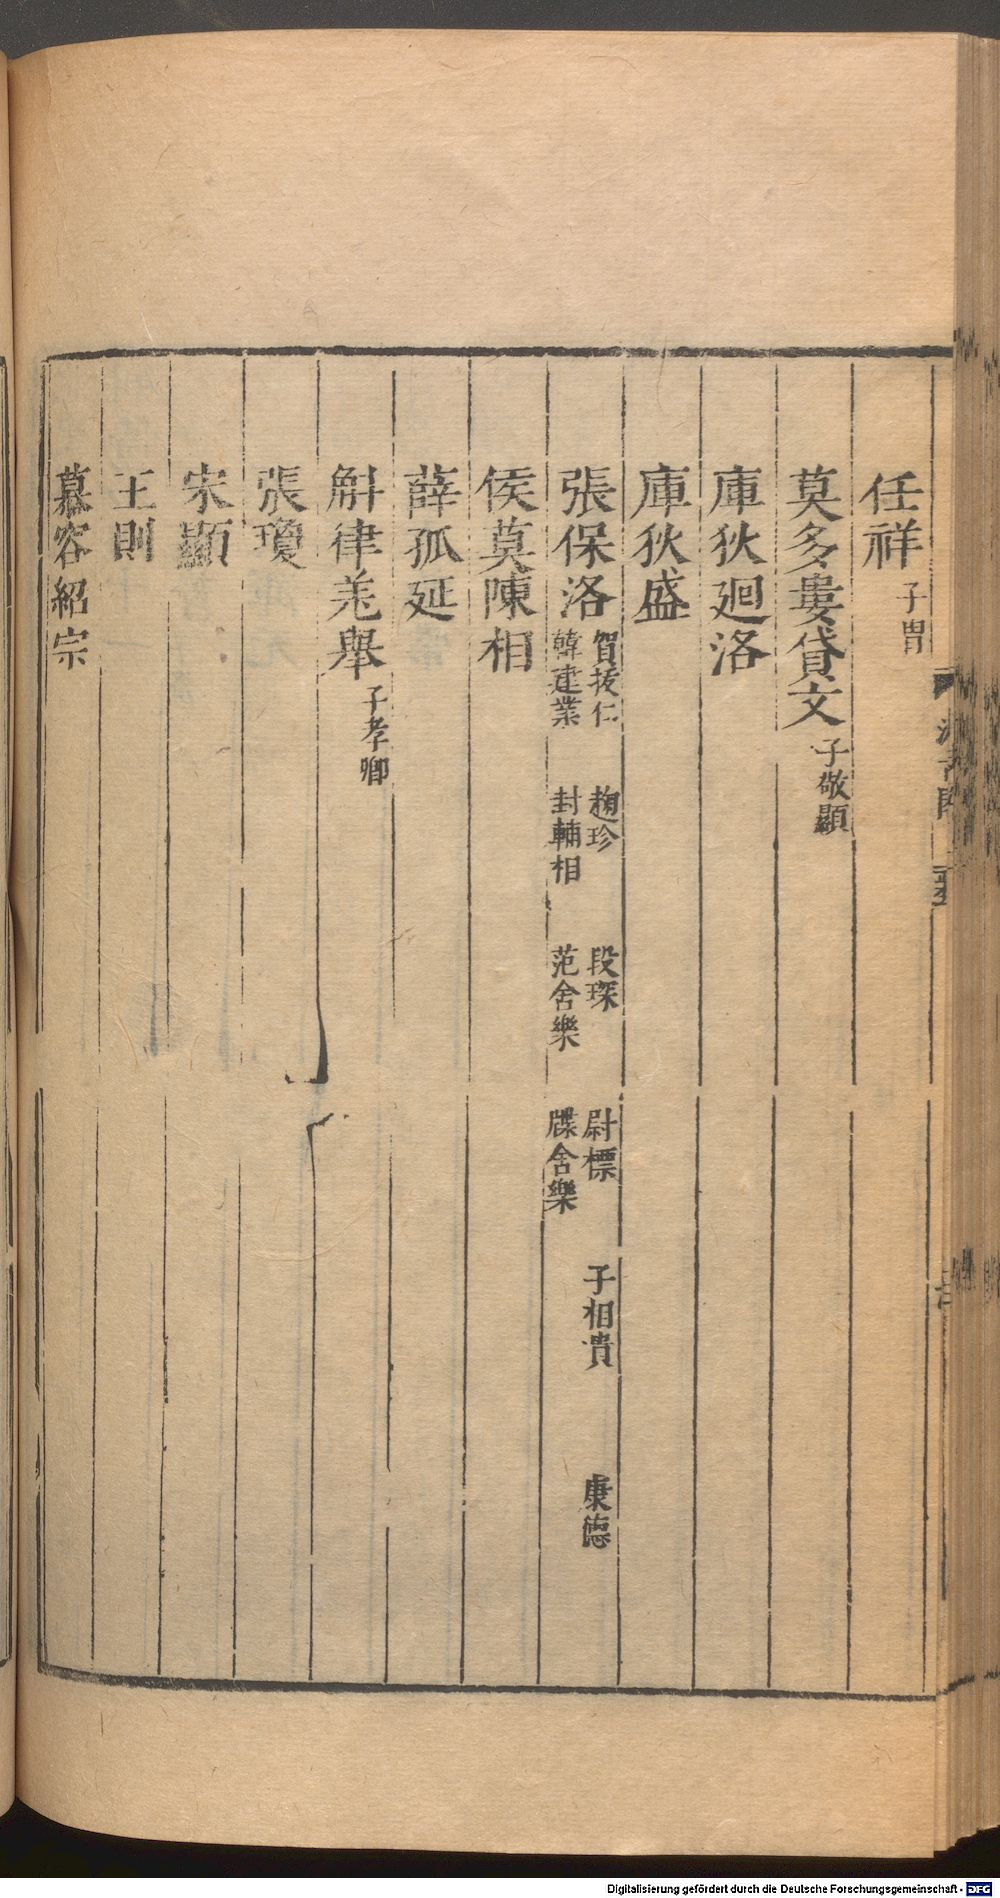 任祥 子冑
莫多婁貸文 子敬顯
庫狄廻洛
庫狄盛
張保洛 賀拔仁 麹珍 段琛 尉標 子相貴 康德
韓建業 封輔相 范舍樂 牒舍樂
侯莫陳相
薛孤延
斛律羌舉 子孝卿
張瓊
宋顯
王則
慕容紹宗
Digitalisierung gefördert durch die Deutsche Forschungsgemeinschaft - DFG